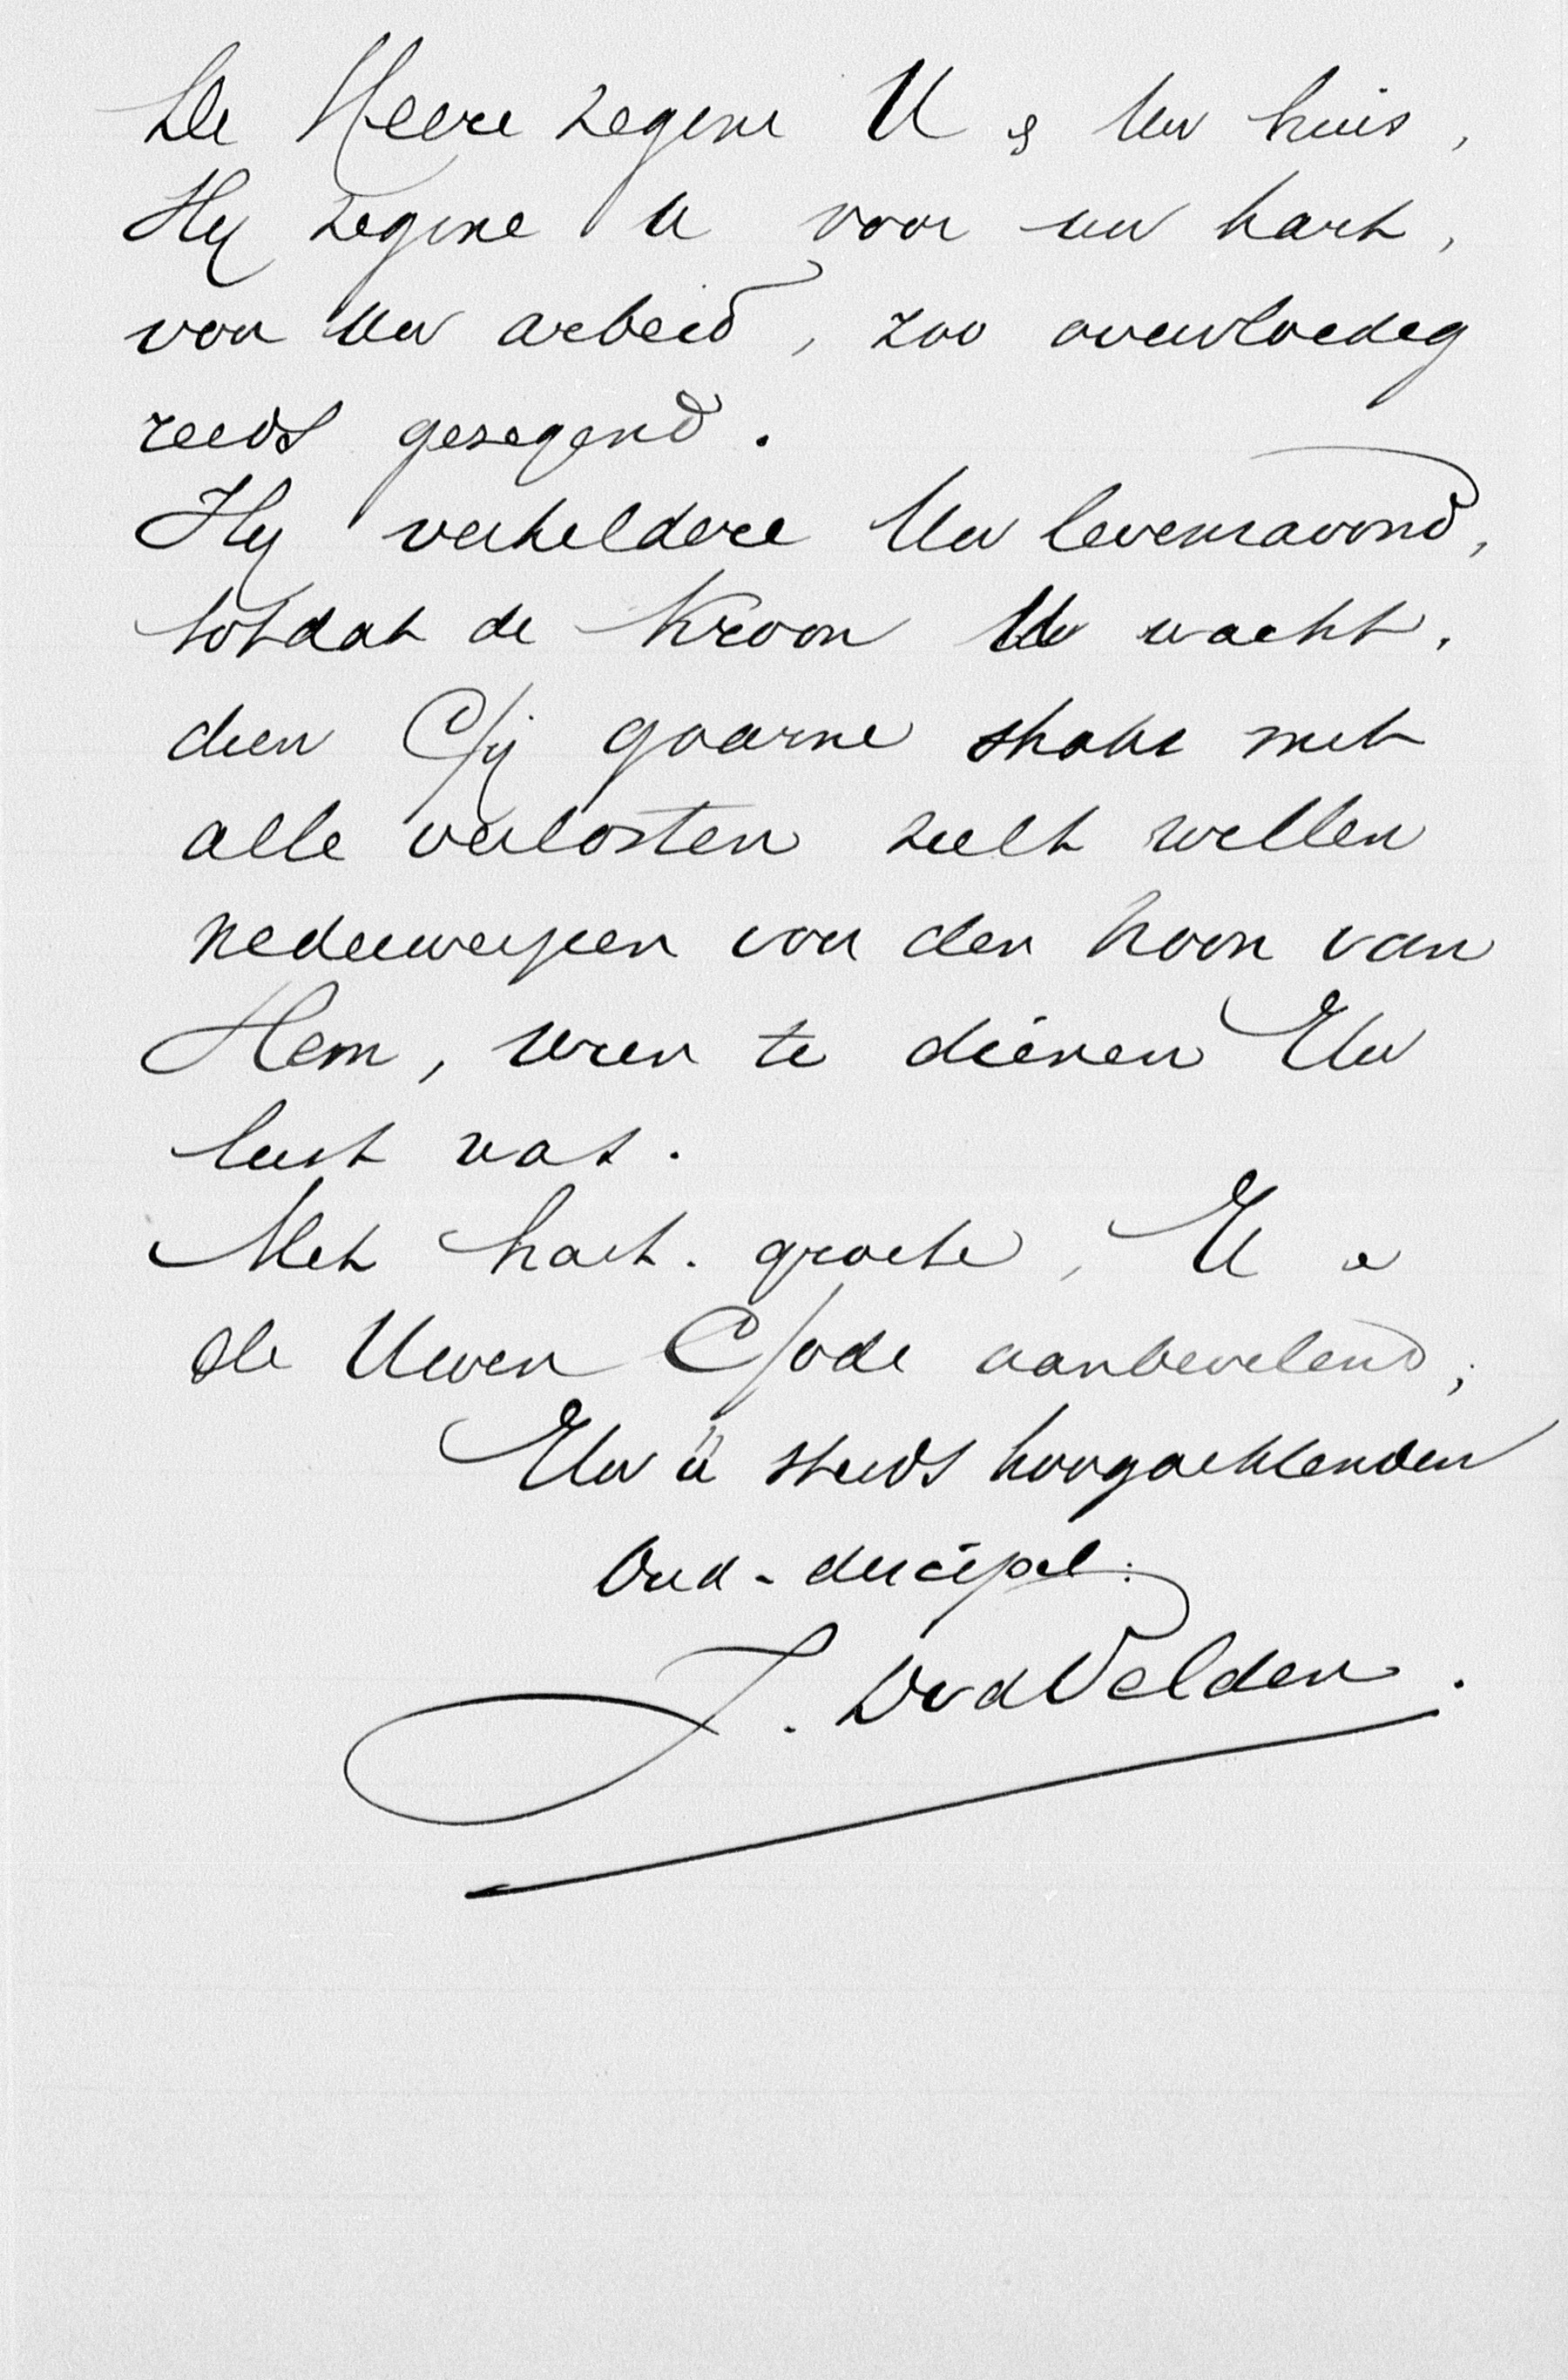 De Heere zegene U & Uw huis,
Hij zegene U voor uw hart,
voor Uw arbeid, zoo overvloedig
reeds gezegend.
Hij verheldere Uw levensavond,
totdat de Kroon U wacht,
dien Gij gaarne straks met
alle verlosten zult willen
nederwerpen voor den troon van
Hem, wien te dienen Uw
lust was.
Met hart. groete, U &
de Uwen Gode aanbevelend,
Uw U steeds hoogachtenden
Oud-discipel.
J. D v d Velden.